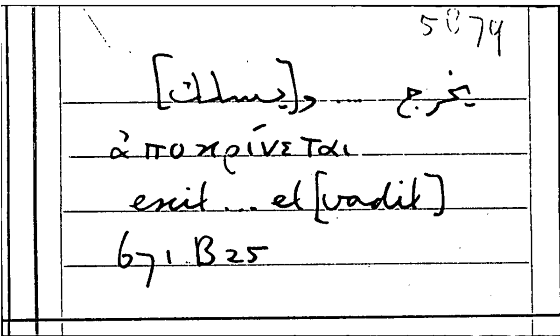 يخرج .... و[يسلك]
ἀποκρίνεται
exit ... et [vadit]
671 B 25